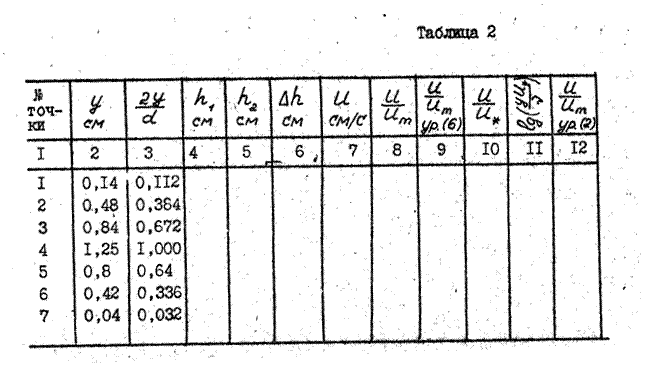 Таблица 2
№ точ- ки | y см | 2y/d | h₁ см | h₂ см | Δh см | U см/с | U/Uₘ | U/Uₘ ур.(6) | U/U* | lg(yU*/ν) | U/Uₘ ур.(2)
I | 2 | 3 | 4 | 5 | 6 | 7 | 8 | 9 | I0 | II | I2
I | 0,I4 | 0,II2
2 | 0,48 | 0,384
3 | 0,84 | 0,672
4 | I,25 | I,000
5 | 0,8 | 0,64
6 | 0,42 | 0,336
7 | 0,04 | 0,032